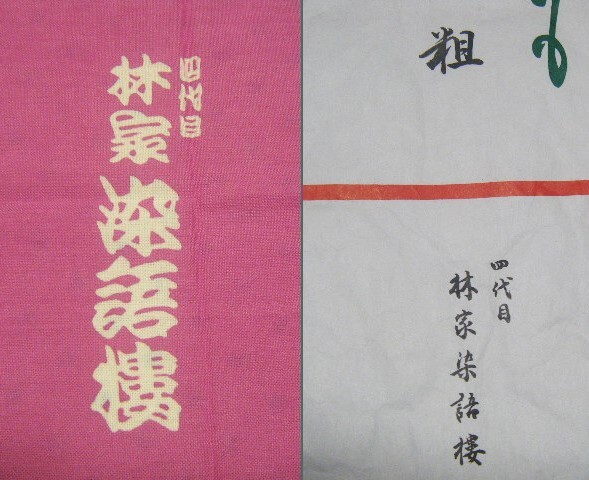 四代目
林家染語樓
粗
四代目
林家染語樓